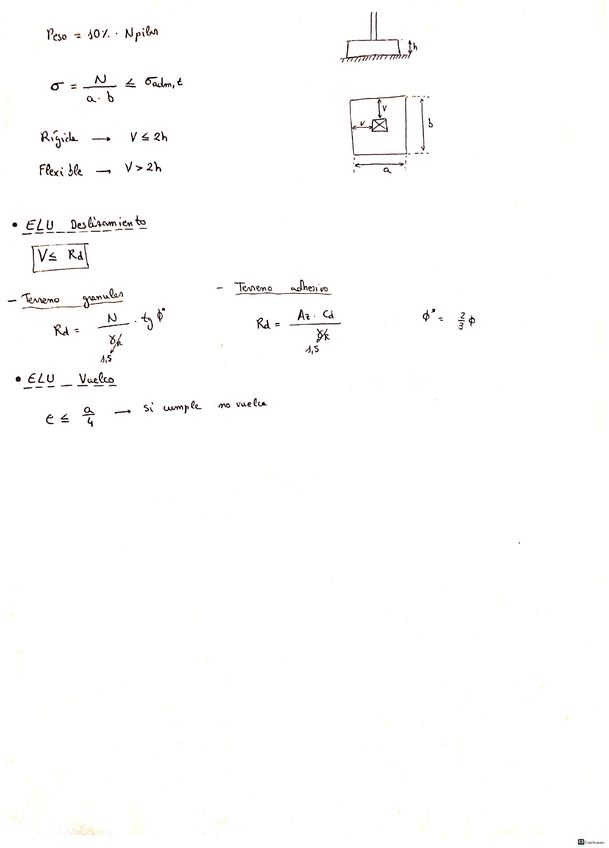 Peso = 10% · N pilar
h
σ = N / a · b ≤ σadm, t
V
V
b
a
Rígida → V ≤ 2h
Flexible → V > 2h
• ELU _ Deslizamiento
V ≤ Rd
– Terreno granular
– Terreno adhesivo
Rd = N / γR · tg φ*
1,5
Rd = Az · Cd / γR
1,5
φ* = 2/3 φ
• ELU _ Vuelco
e ≤ a/4 → si cumple no vuelca
CS CamScanner